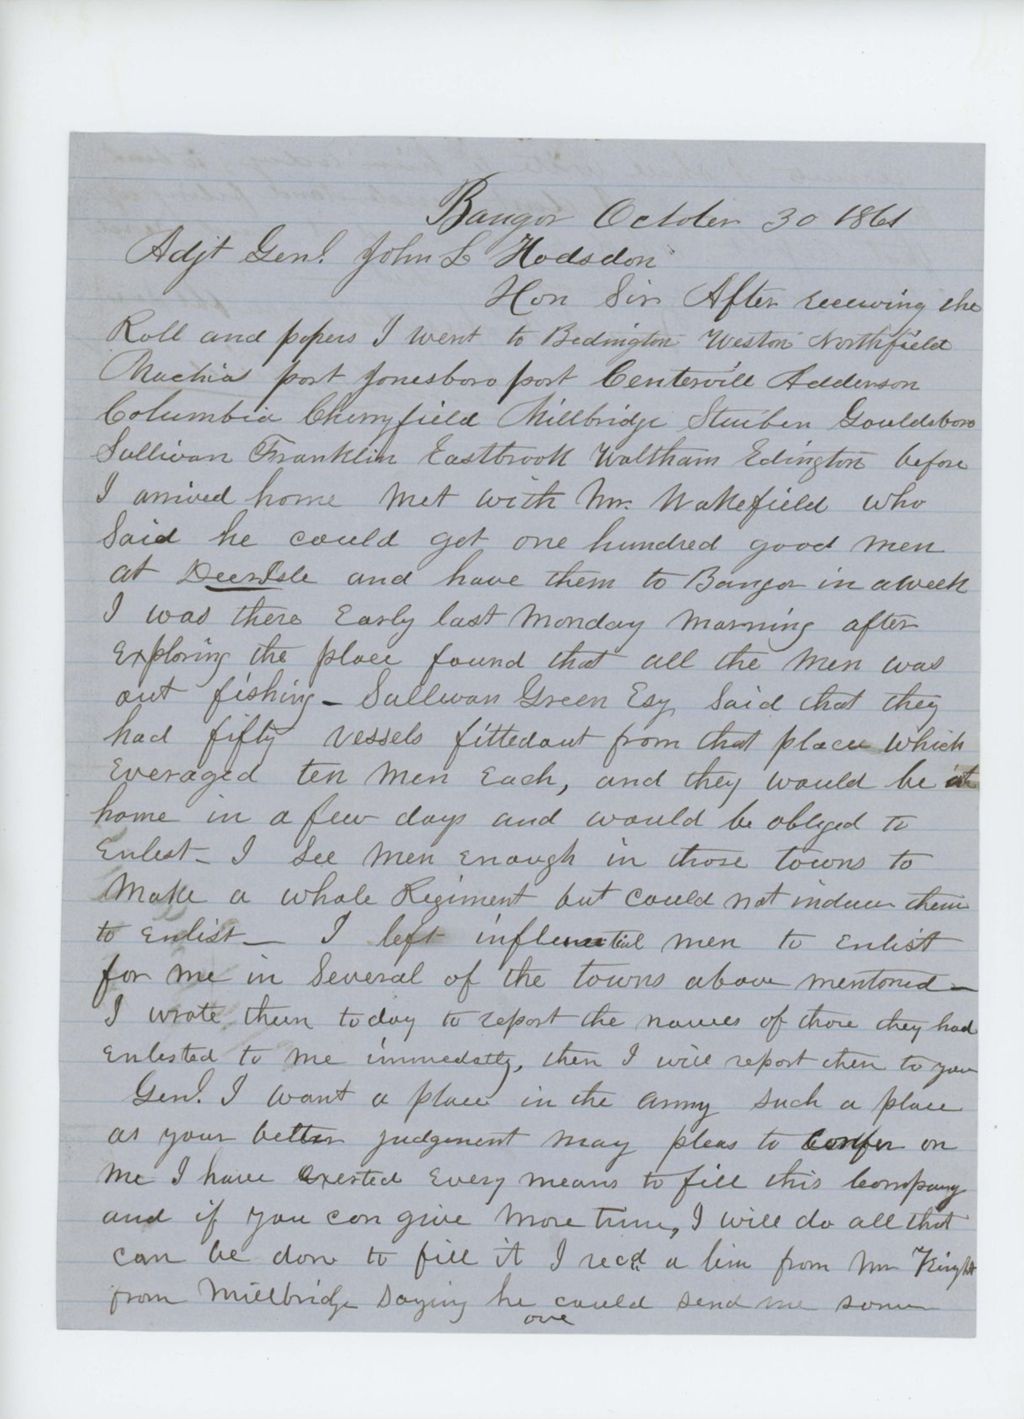 Bangor October 30 1861
Adjt Genl. John L Hodsdon
Hon Sir After receiving the
Roll and papers I went to Bedington Weston Northfield
Machias port Jonesboro port Centervill Adderson
Columbia Cherryfield Millbridge Steuben Gouldsboro
Sullivan Franklin Eastbrook Waltham Edington before
I arrived home Met with Mr. Wakefield who
Said he could get one hundred good men
at Deer Isle and have them to Bangor in a week
I was there Early last Monday Morning after
Exploring the place found that all the Men was
out fishing - Sullivan Green Esq Said that they
had fifty vessels fitted out from that place which
Everaged ten Men Each, and they would be at
home in a few days and would be obliged to
Enlist - I See Men Enough in those towns to
Make a whole Regiment but could not induce them
to Enlist - I left influential men to Enlist
for me in Several of the towns above mentoned -
I wrote them today to report the names of those they had
Enlisted to me immedatly, then I will report them to you
Genl. I want a place in the army such a place
as your better judgement may pleas to confer on
Me I have Exerted Every means to fill this Company
and if you can give More time, I will do all that
can be done to fill it I recd a line from Mr Knight
from Millbridge Saying he could send me some
over